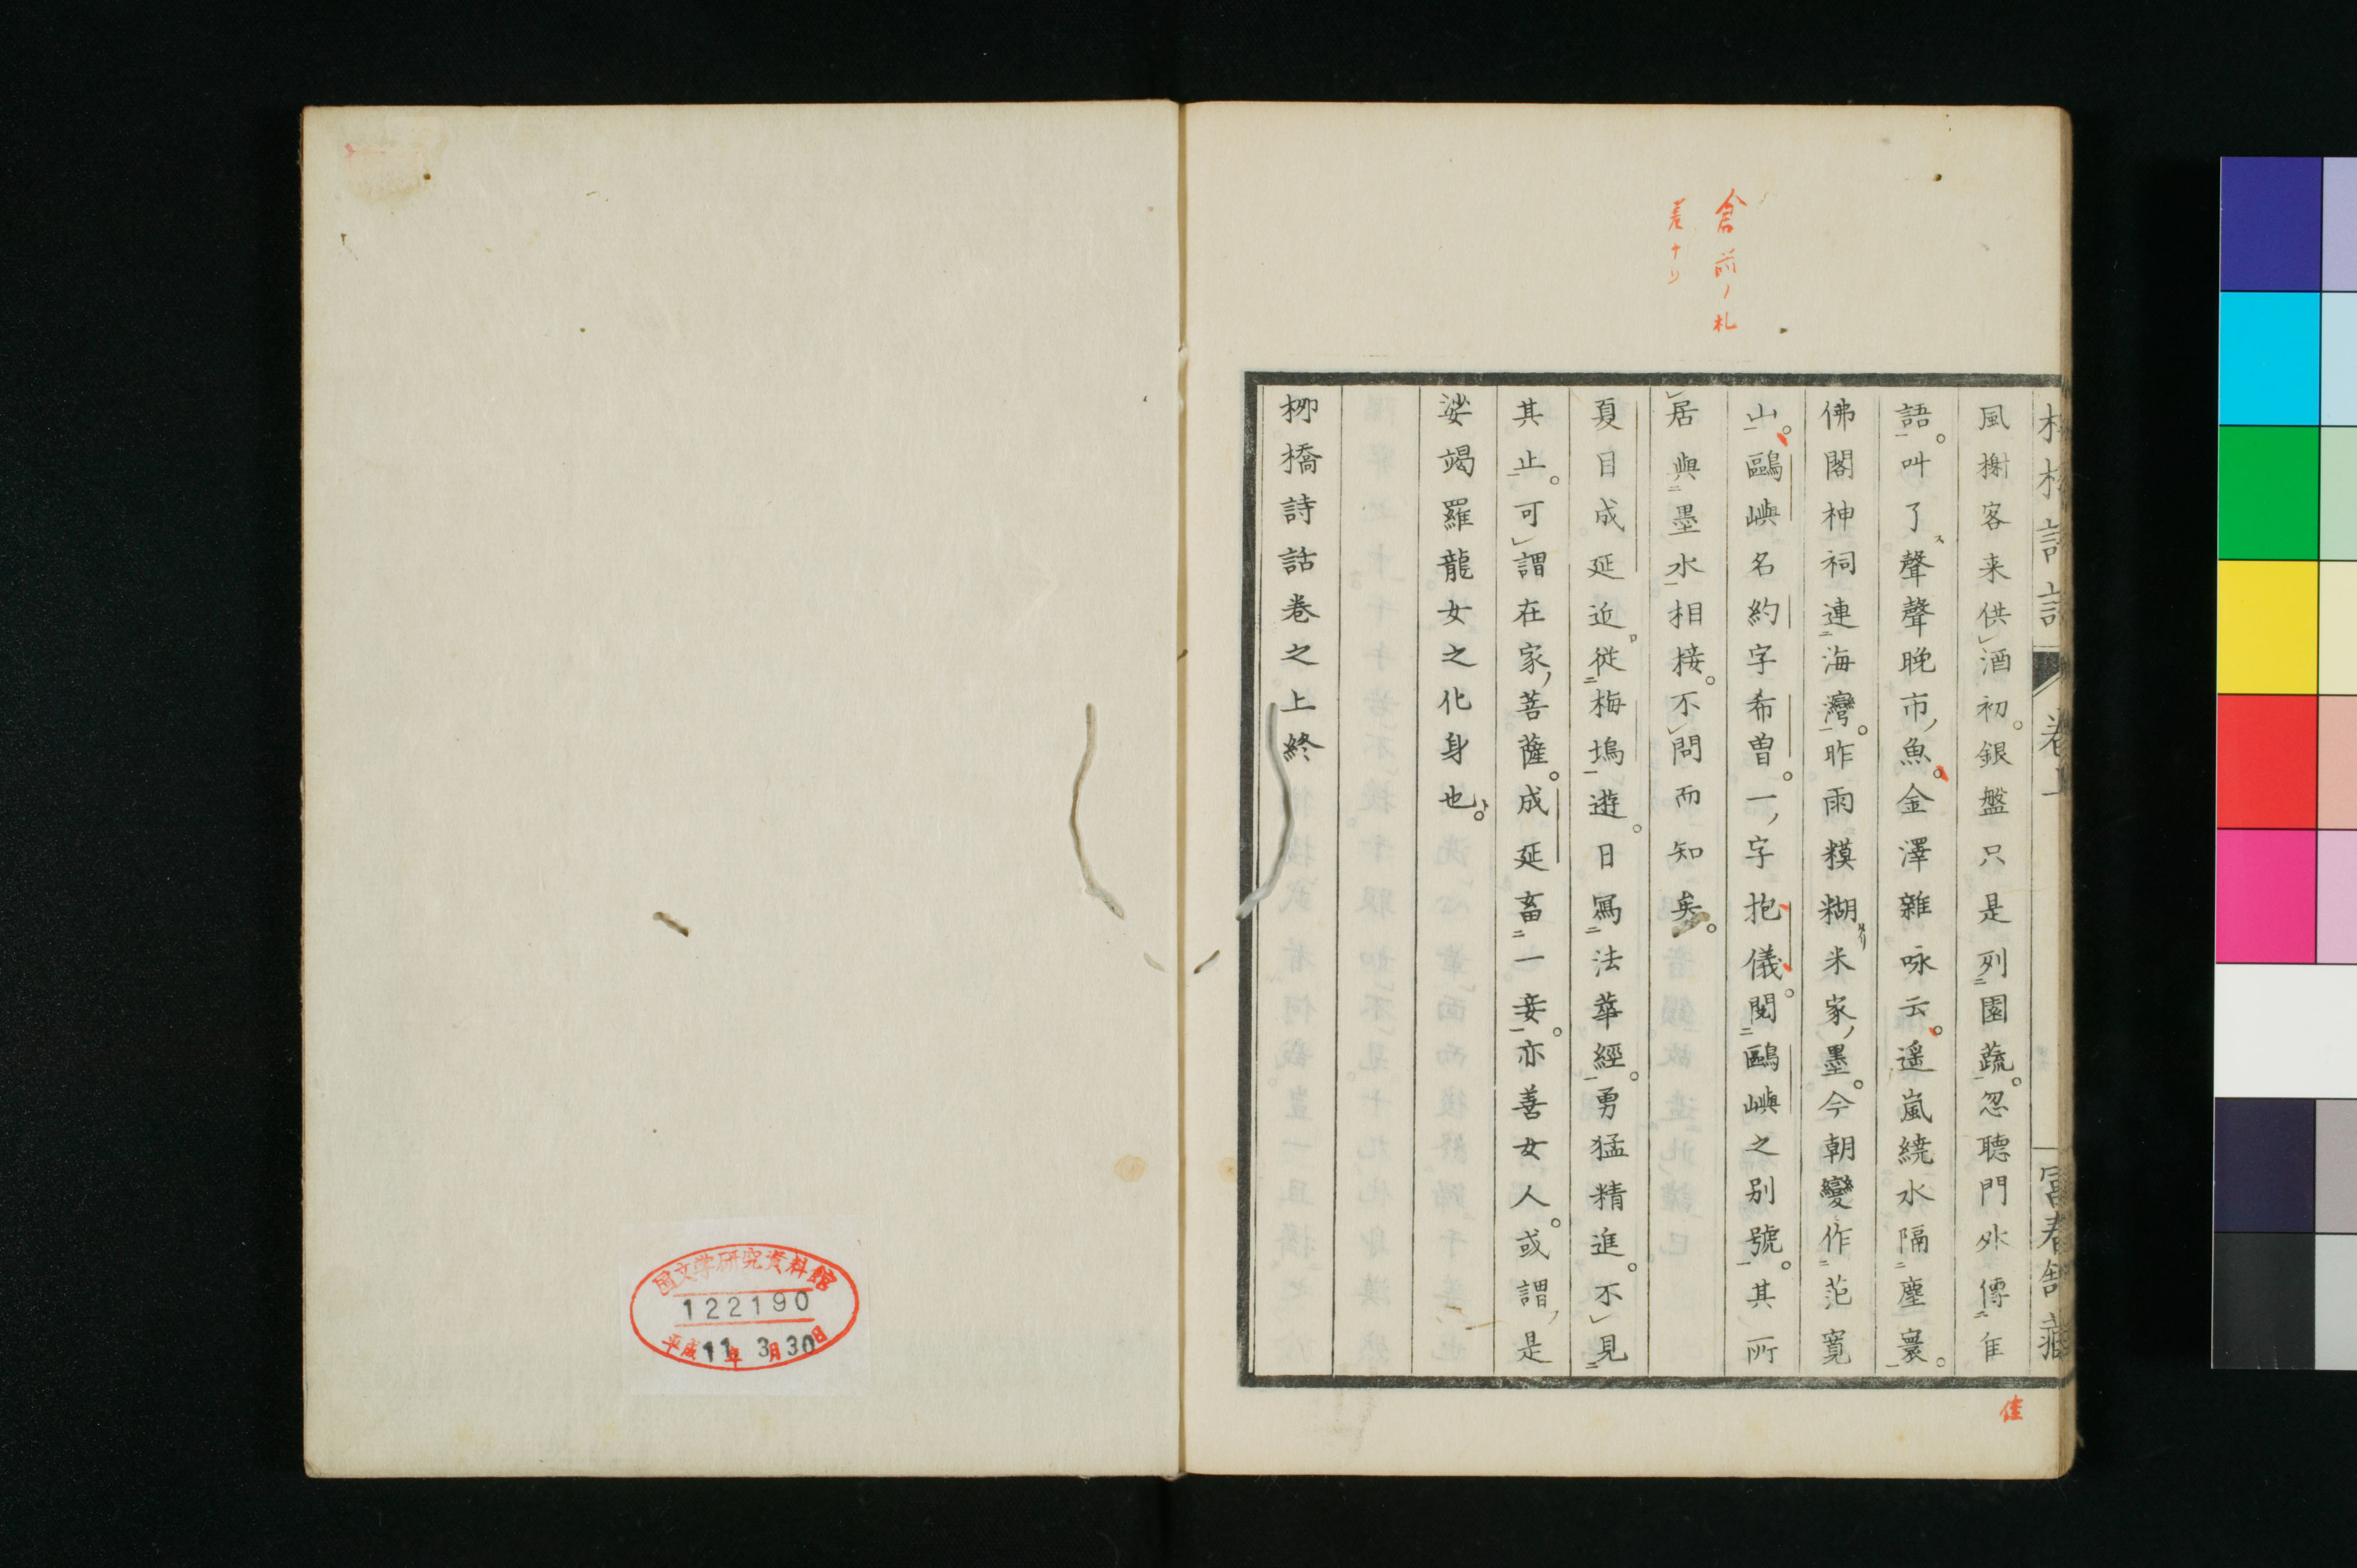 倉前ノ札
差ナリ
風榭客来供酒初。銀盤只是列園蔬。忽聴門外傳隹
語。叫了聲聲晩市魚。金澤雜咏云。遥嵐繞水隔塵寰。
佛閣神祠連海灣。昨雨糢糊米家墨。今朝變作范寬
山。鷗嶼名約字希曽。一字抱儀。閲鷗嶼之別號。其所
居與墨水相接。不問而知矣。
夏目成延近従梅塢遊。日寫法華經。勇猛精進。不見
其止。可謂在家菩薩。成延畜一妾。亦善女人。或謂是
娑竭羅龍女之化身也。
栁橋詩話巻之上終
佳
国文学研究資料館
122190
平成11年3月30日